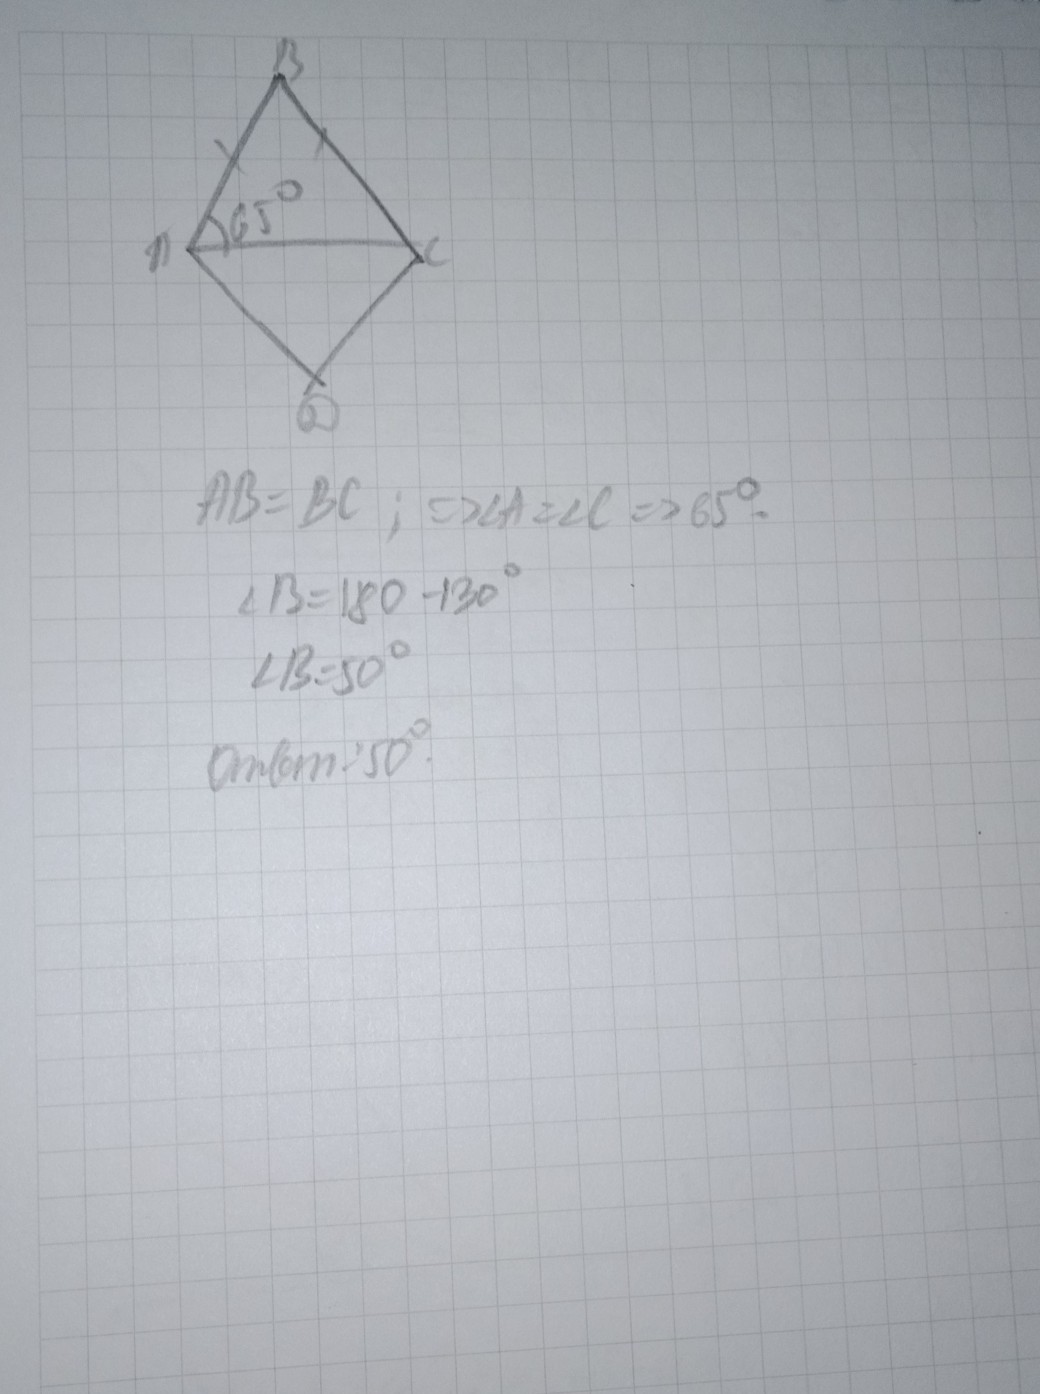 B
65°
A
C
D
AB = BC ; => ∠A = ∠C => 65°.
∠B = 180 - 130°
∠B = 50°
Ответ: 50°.